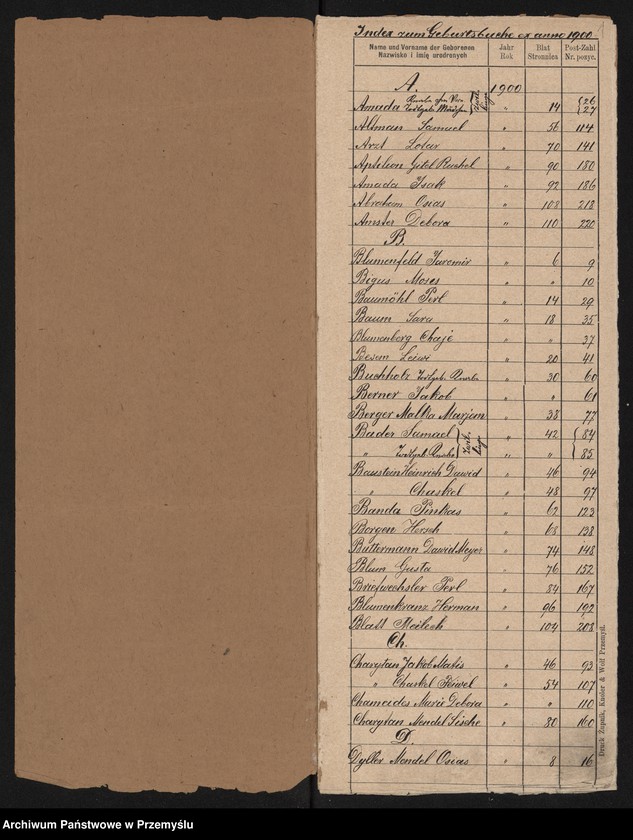 Index zum Geburtsbuche ex anno 1900
Name und Vorname der Geborenen Jahr Blat Post-Zahl
Nazwisko i imię urodzonych Rok Stronnica Nr. pozyc.
A. 1900
Amada 14 {26 {27
Altman Samuel " 56 114
Arzt Lotar " 70 141
Gitel Ruchel " 90 180
Amada Isak " 92 186
Abraham Osias " 108 218
Amster Debora " 110 220
B.
Blumenfeld Jaromir " 6 9
Begus Moses " " 10
Baumöhl Perl " 14 29
Baum Sara " 18 35
Blumenberg Chaje " " 37
Besem Leiwi " 20 41
Buchholz Todtgeb. " 30 60
Berner Jakob " " 61
Berger Malka Marjem " 38 77
Bader Samuel " 42 {84
" Todtgeb. " " {85
Baustein Heinrich Dawid " 46 94
" Chaskel " 48 97
Banda Pinkas " 62 123
Borgen Hersch " 68 138
Buttermann Dawid Meyer " 74 148
Blum Gusta " 76 152
Briefwechsler Perl " 84 167
Blumenkranz Herman " 96 192
Blatt Meilech " 104 208
Ch.
Chargtan Jakob Matis " 46 93
" Charkel Feiwel " 54 107
Chameides Maria Debora " " 110
Chargtan Mendel Sische " 80 160
D.
Dyller Mendel Osias " 8 16
Druck Żupnik, Knoller & Wolf Przemyśl.
Archiwum Państwowe w Przemyślu